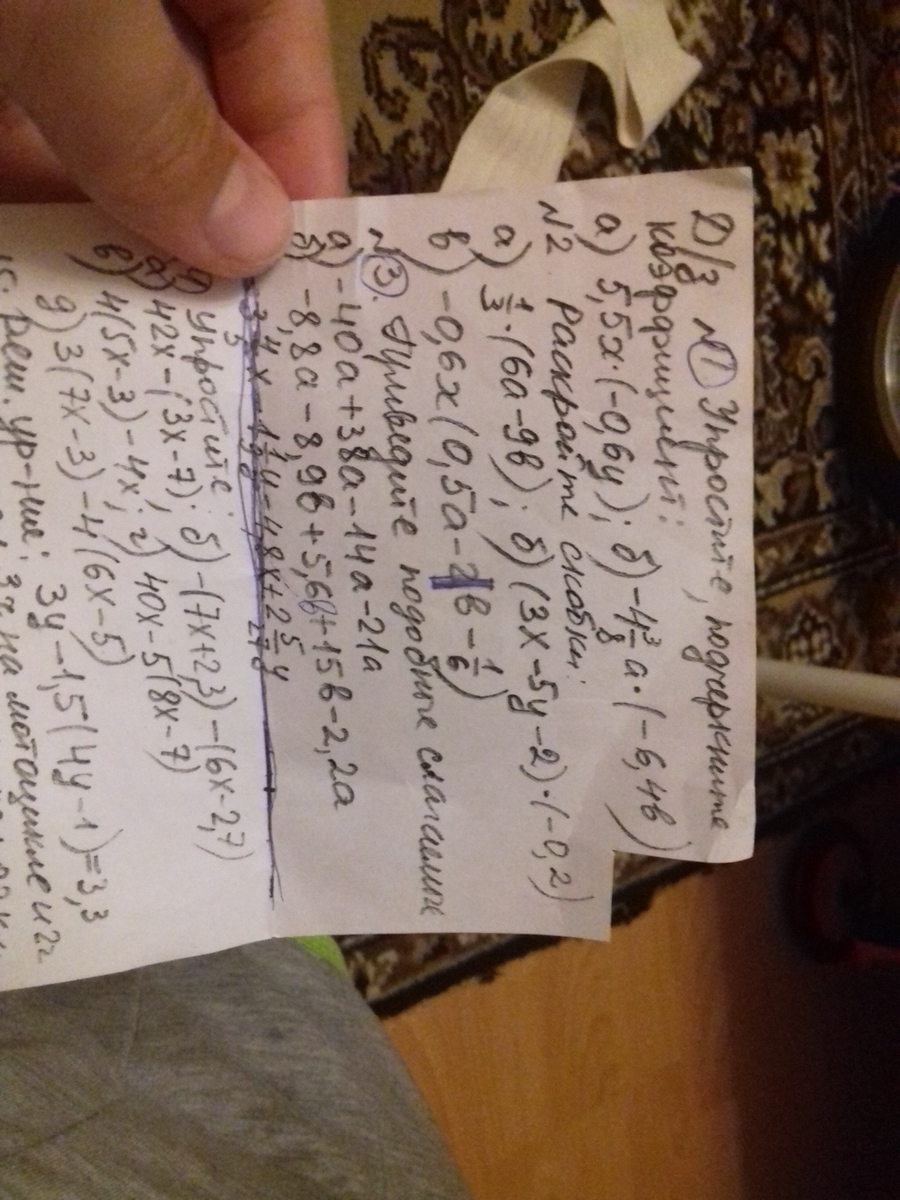 Д/з №1 Упростите, подчеркните
коэффициент:
а) 5,5x·(-0,6y); б) -4 3/8 a·(-6,4в)
№2 раскройте скобки:
а) 1/3·(6а-9в); б) (3x-5y-2)·(-0,2)
в) -0,6x(0,5а-2в-1/6)
№3. Приведите подобные слагаемые
а) -40а+38а-14а-21а
б) -8,8а-8,9в+5,6в+15в-2,2а
упростите: б) -(7x+2,3)-(6x-2,7)
42x-(3x-7);
в) 4(5x-3)-4x; г) 40x-5(8x-7)
g) 3(7x-3)-4(6x-5)
реш. ур-ние: 3y-1,5(4y-1)=3,3
на мотоцикле и 2ч